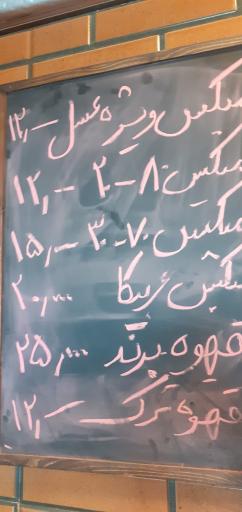 میکس ویژه عسل ۱۲٫-
میکس ۸۰-۲۰ -٫۱۲
میکس ۷۰-۳۰ -٫۱۵
میکس عربیکا ۲۰٫۰۰۰
قهوه برند ۲۵٫۰۰۰
قهوه ترک -٫۱۲